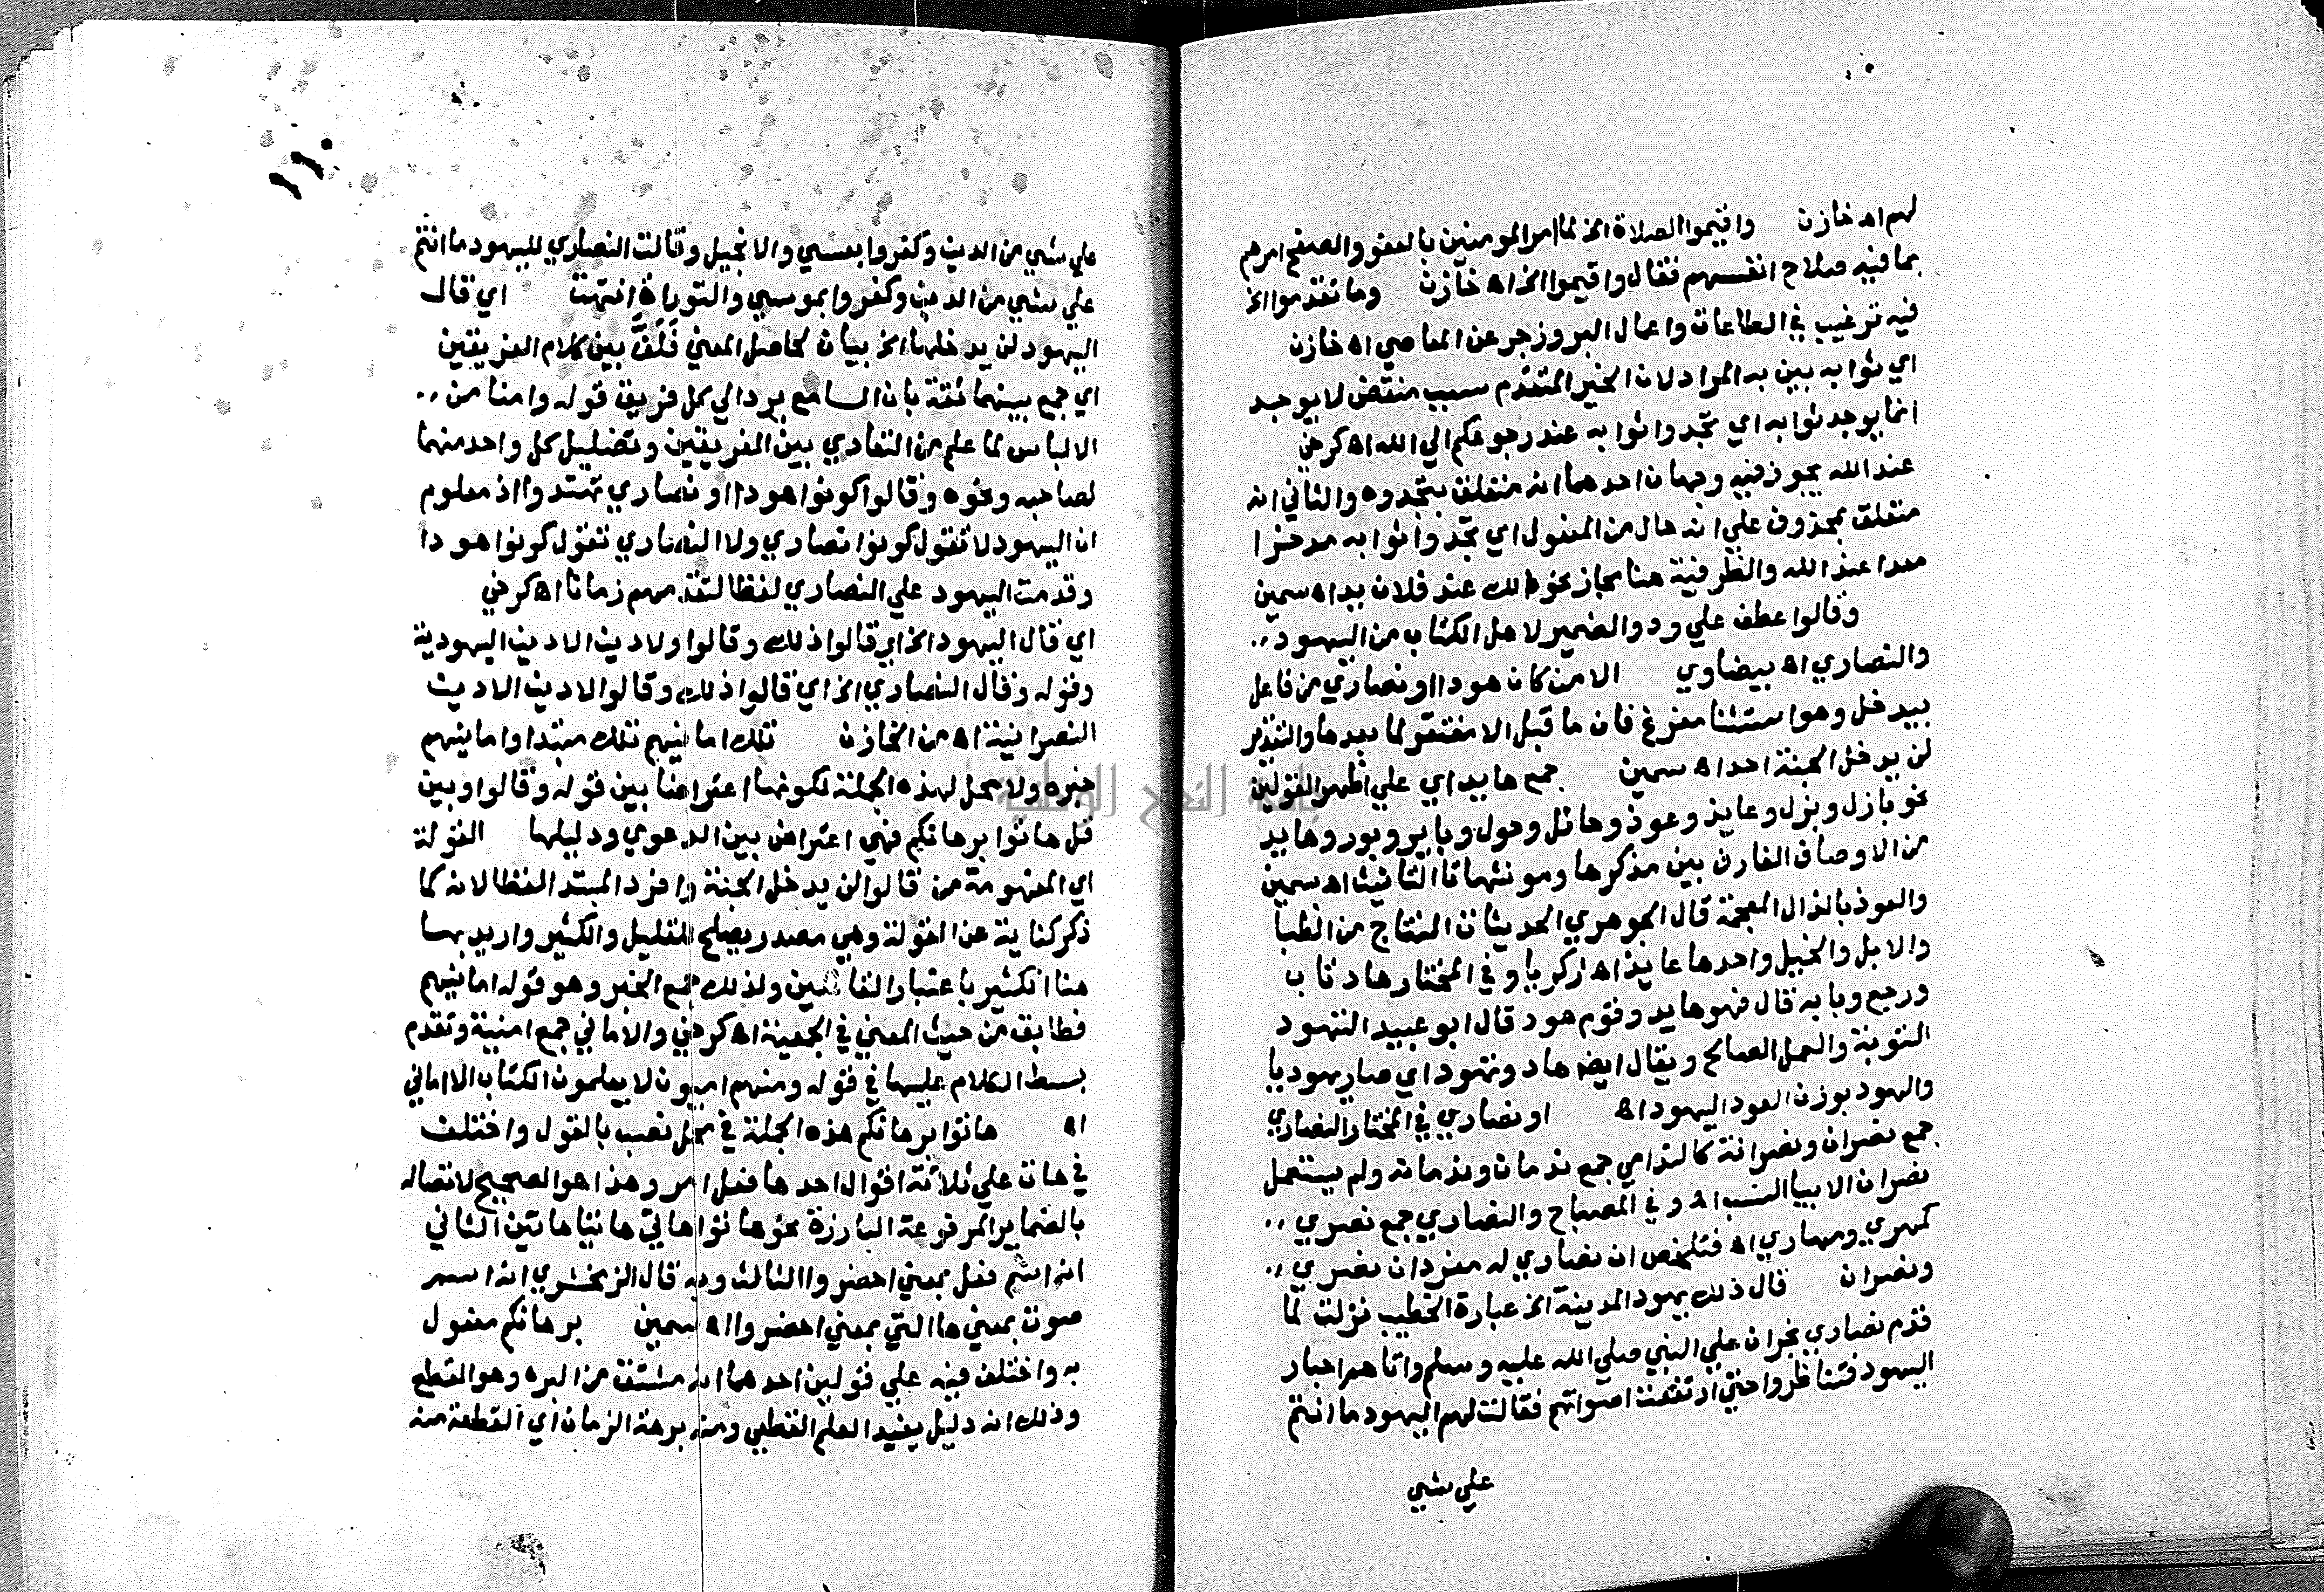 لهم اه خازن واقيموا الصلاة الخ لما امر المومنين بالعفو والصفح امرهم
بما فيه صلاح انفسهم فقال واقيموا الخ اه خازن وما تقدموا الخ
فيه ترغيب في الطاعات واعمال البر وزجر عن المعاصي اه خازن
اي ثوابه بين به المراد لان الخير المتقدم سبب منقض لا يوجد
انما يوجد ثوابه اي تجدوا ثوابه عند رجوعكم الي الله اه كرخي
عند الله يجوز فيه وجهان احدهما انه متعلق بتجدوه والثاني انه
متعلق بمحذوف علي انه حال من المفعول اي تجدوا ثوابه مدخرا
معدا عند الله والظرفية هنا مجاز نحو لك عند فلان يد اه سمين
وقالوا عطف علي ود والضمير لاهل الكتاب من اليهود
والنصاري اه بيضاوي الا من كان هودا او نصاري من فاعل
بيدخل وهو استثنا مفرغ فان ما قبل الا مفتقر لما بعدها والتقدير
لن يدخل الجنة احد اه سمين جمع هايد اي علي اظهر القولين
نحو بازل وبزل وعايذ وعوذ وحائل وحول وباير وبور وهايد
من الاوصاف الفارق بين مذكرها ومونثها تا التانيث اه سمين
والعوذ بالذال المعجمة قال الجوهري الحديثات النتاج من الظبا
والابل والخيل واحدها عايذ اه زكريا وفي المختار هاد تاب
ورجع وبابه قال فهو هايد وقوم هود قال ابو عبيد التهود
التوبة والعمل الصالح ويقال ايضا هاد وتهود اي صار يهوديا
والهود بوزن العود اليهود اه او نصاري في المختار النصاري
جمع نصران ونصرانة كالندامي جمع ندمان وندمانة ولم يستعمل
نصران الا بيا النسب اه وفي المصباح والنصاري جمع نصري
كمهري ومهاري اه فتلخص ان نصاري له مفردان نصري
ونصران قال ذلك يهود المدينة الخ عبارة الخطيب نزلت لما
قدم نصاري نجران علي النبي صلي الله عليه وسلم واتاهم احبار
اليهود فتناظروا حتي ارتفعت اصواتهم فقالت لهم اليهود ما انتم
علي شي
١١٠
علي شي من الدين وكفروا بعيسي والانجيل وقالت النصاري لليهود ما انتم
علي شي من الدين وكفروا بموسي والتوراة انتهت اي قال
اليهود لن يدخلها الخ بيان لحاصل المعني فلف بين كلام الفريقين
اي جمع بينهما ثقة بان السامع يرد الي كل فريق قوله وامنا من
الالباس لما علم من التعادي بين الفريقين وتضليل كل واحد منهما
لصاحبه ونحوه وقالوا كونوا هودا او نصاري تهتدوا اذ معلوم
ان اليهود لا تقول كونوا نصاري ولا النصاري تقول كونوا هودا
وقدمت اليهود علي النصاري لفظا لتقدمهم زمانا اه كرخي
اي قال اليهود الخ اي قالوا ذلك وقالوا ولا دين الا دين اليهودية
وقوله وقال النصاري الخ اي قالوا ذلك وقالوا لا دين الا دين
النصرانية اه من الخازن تلك امانيهم تلك مبتدا وامانيهم
خبره ولا محل لهذه الجملة لكونها اعتراضا بين قوله وقالوا وبين
قل هاتوا برهانكم فهي اعتراض بين الدعوي ودليلها القولة
اي المفهومة من قالوا لن يدخل الجنة وافرد المبتدا لفظا لانه كما
ذكر كناية عن القولة وهي مصدر يصلح للقليل والكثير واريد بها
هنا الكثير باعتبار القائلين ولذلك جمع الخبر وهو قوله امانيهم
فطابق من حيث المعني في الجمعية اه كرخي والاماني جمع امنية وتقدم
بسط الكلام عليها في قوله ومنهم اميون لا يعلمون الكتاب الا اماني
اه هاتوا برهانكم هذه الجملة في محل نصب بالقول واختلف
في هات علي ثلاثة اقوال احدها فعل امر وهذا هو الصحيح لاتصاله
بالضماير المرفوعة البارزة نحو هاتوا هاتي هاتيا هاتين الثاني
انه اسم فعل بمعني احضروا الثالث وبه قال الزمخشري انه اسم
صوت بمعني ها التي بمعني احضروا اه سمين برهانكم مفعول
به واختلف فيه علي قولين احدهما انه مشتق من البره وهو القطع
وذلك انه دليل يفيد العلم القطعي ومنه برهة الزمان اي القطعة منه